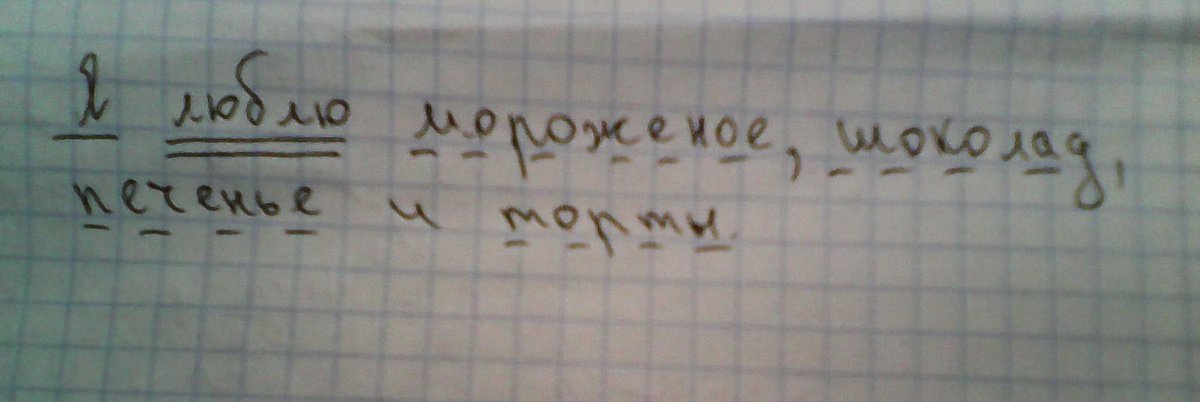 Я люблю мороженое, шоколад,
печенье и торты.